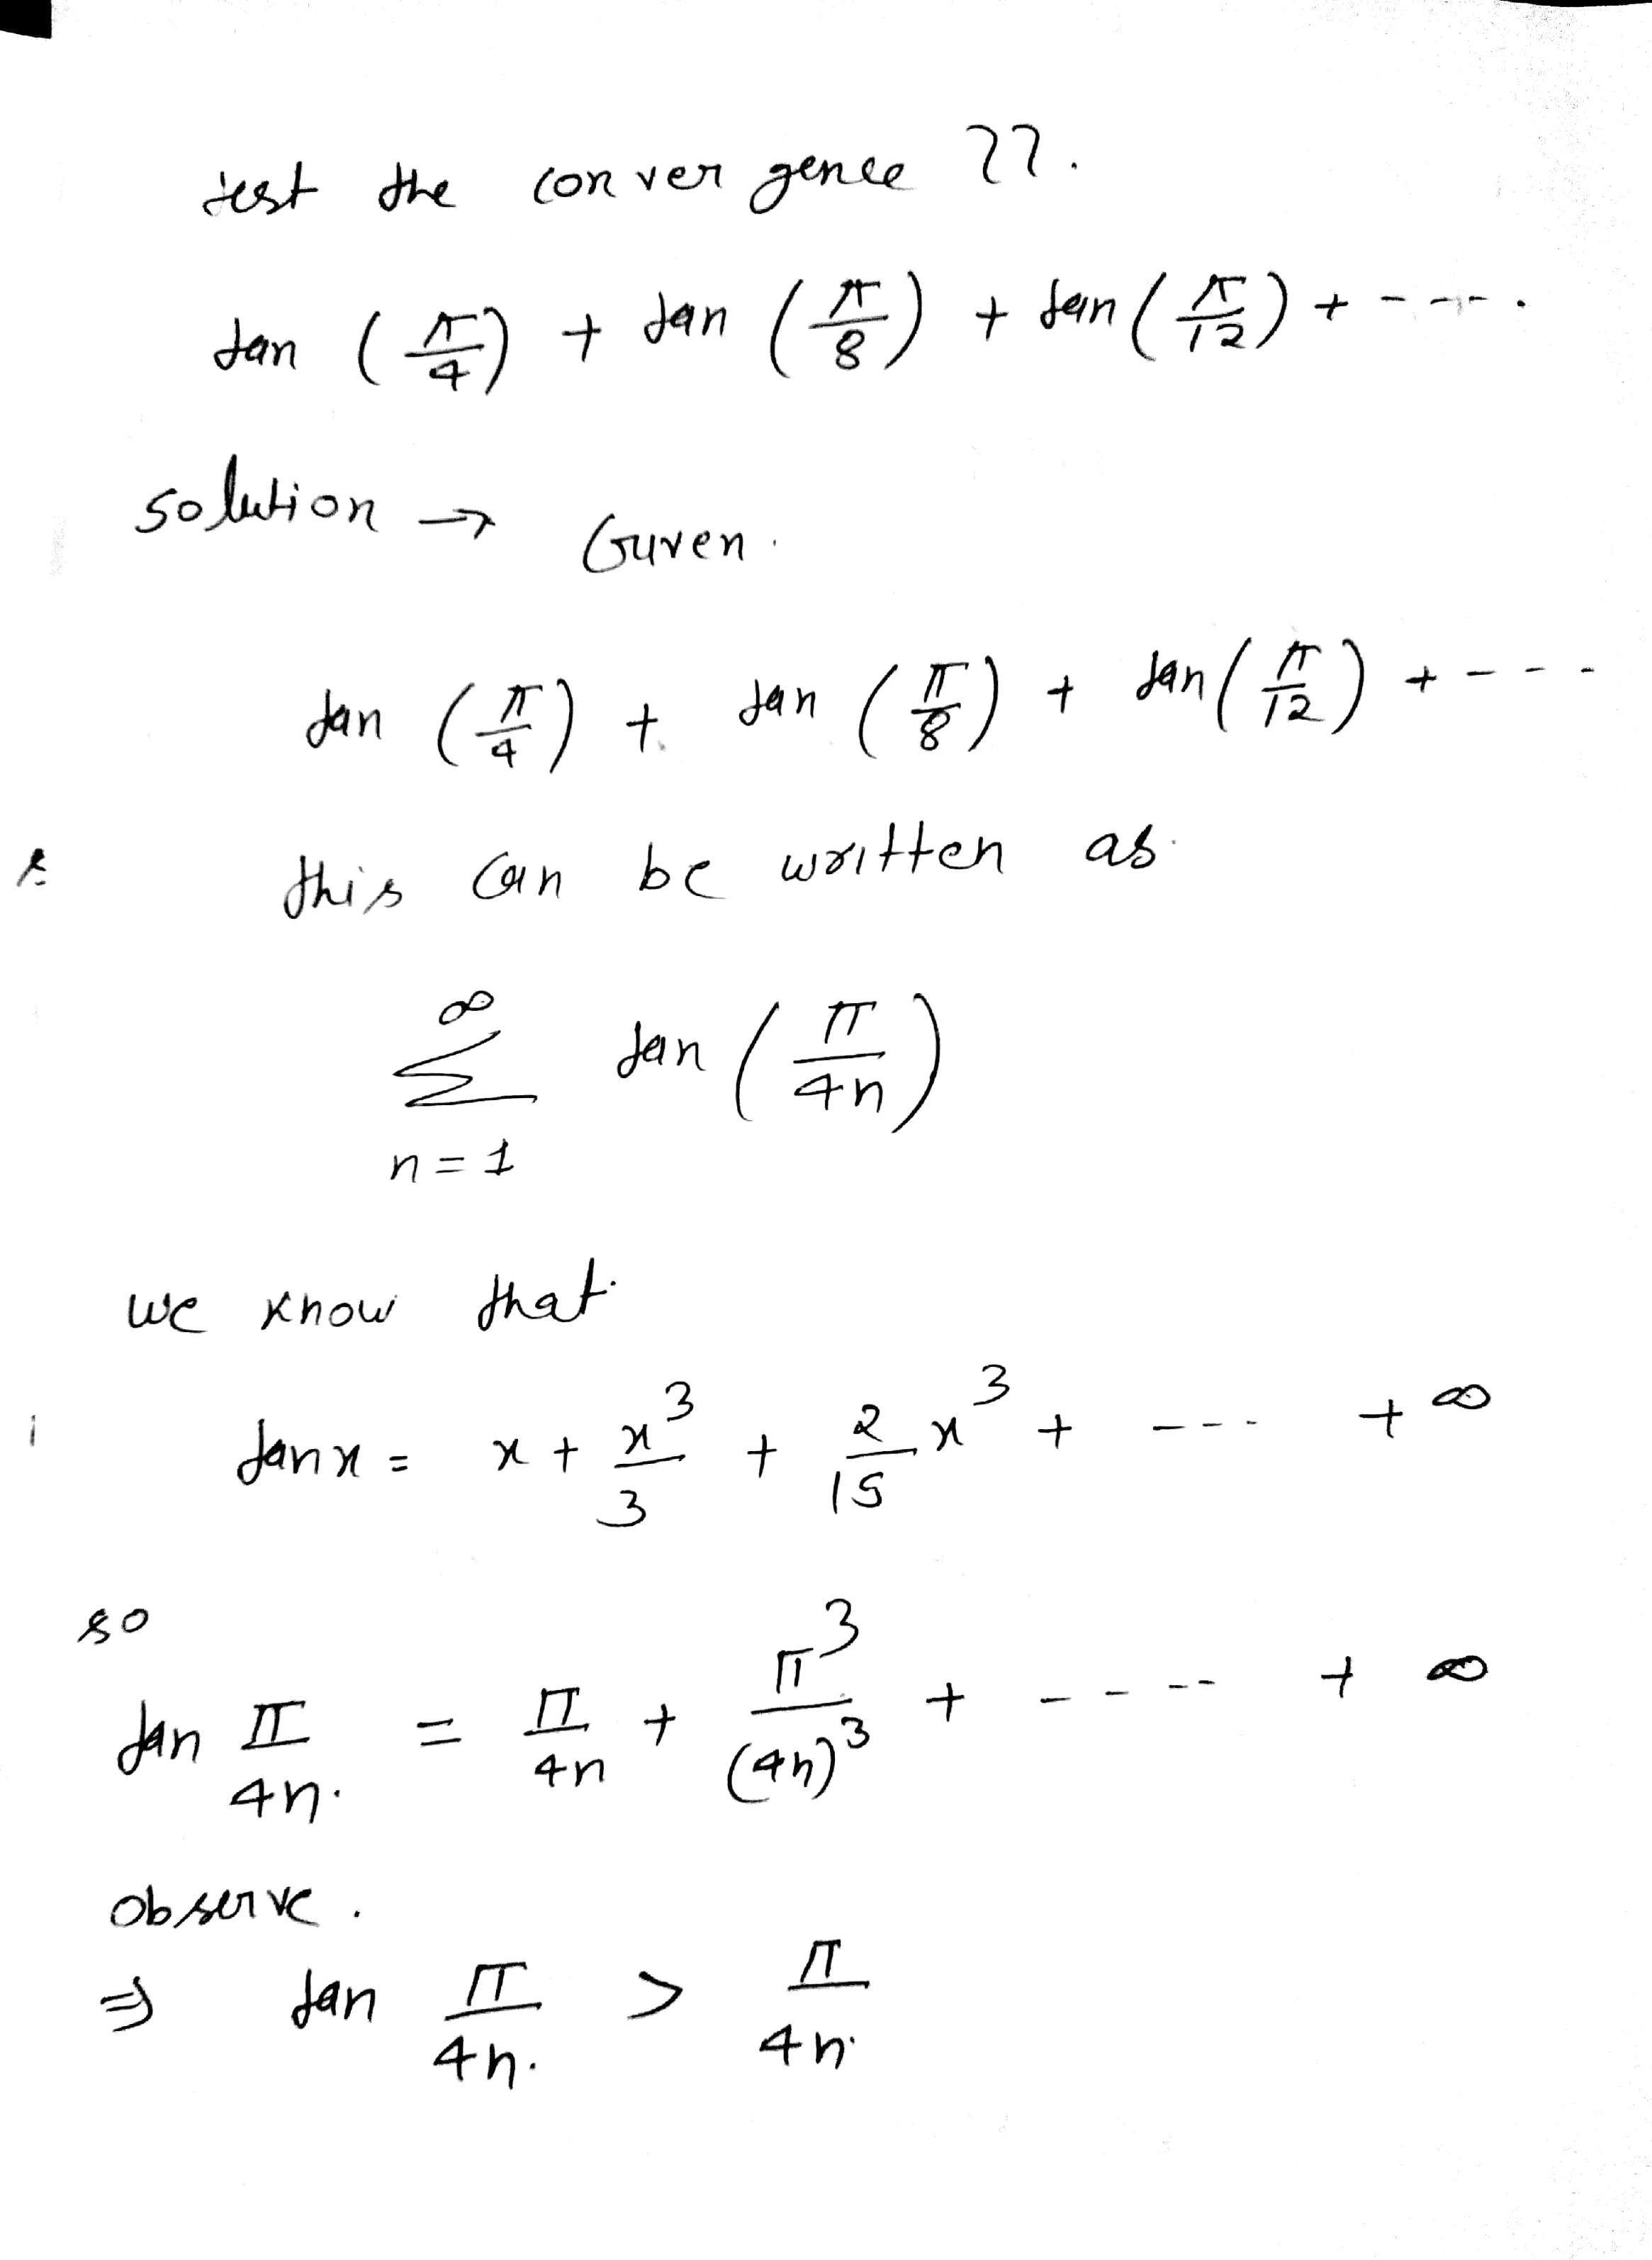 test the convergence ??.
tan (π/4) + tan (π/8) + tan (π/12) + - - - .
solution → Given.
tan (π/4) + tan (π/8) + tan (π/12) + - - -
this can be written as
∞ Σ n=1 tan (π/4n)
we know that
tan x = x + x³/3 + 2/15 x³ + - - - + ∞
so
tan π/4n. = π/4n + π³/(4n)³ + - - - - + ∞
observe.
⇒ tan π/4n. > π/4n.